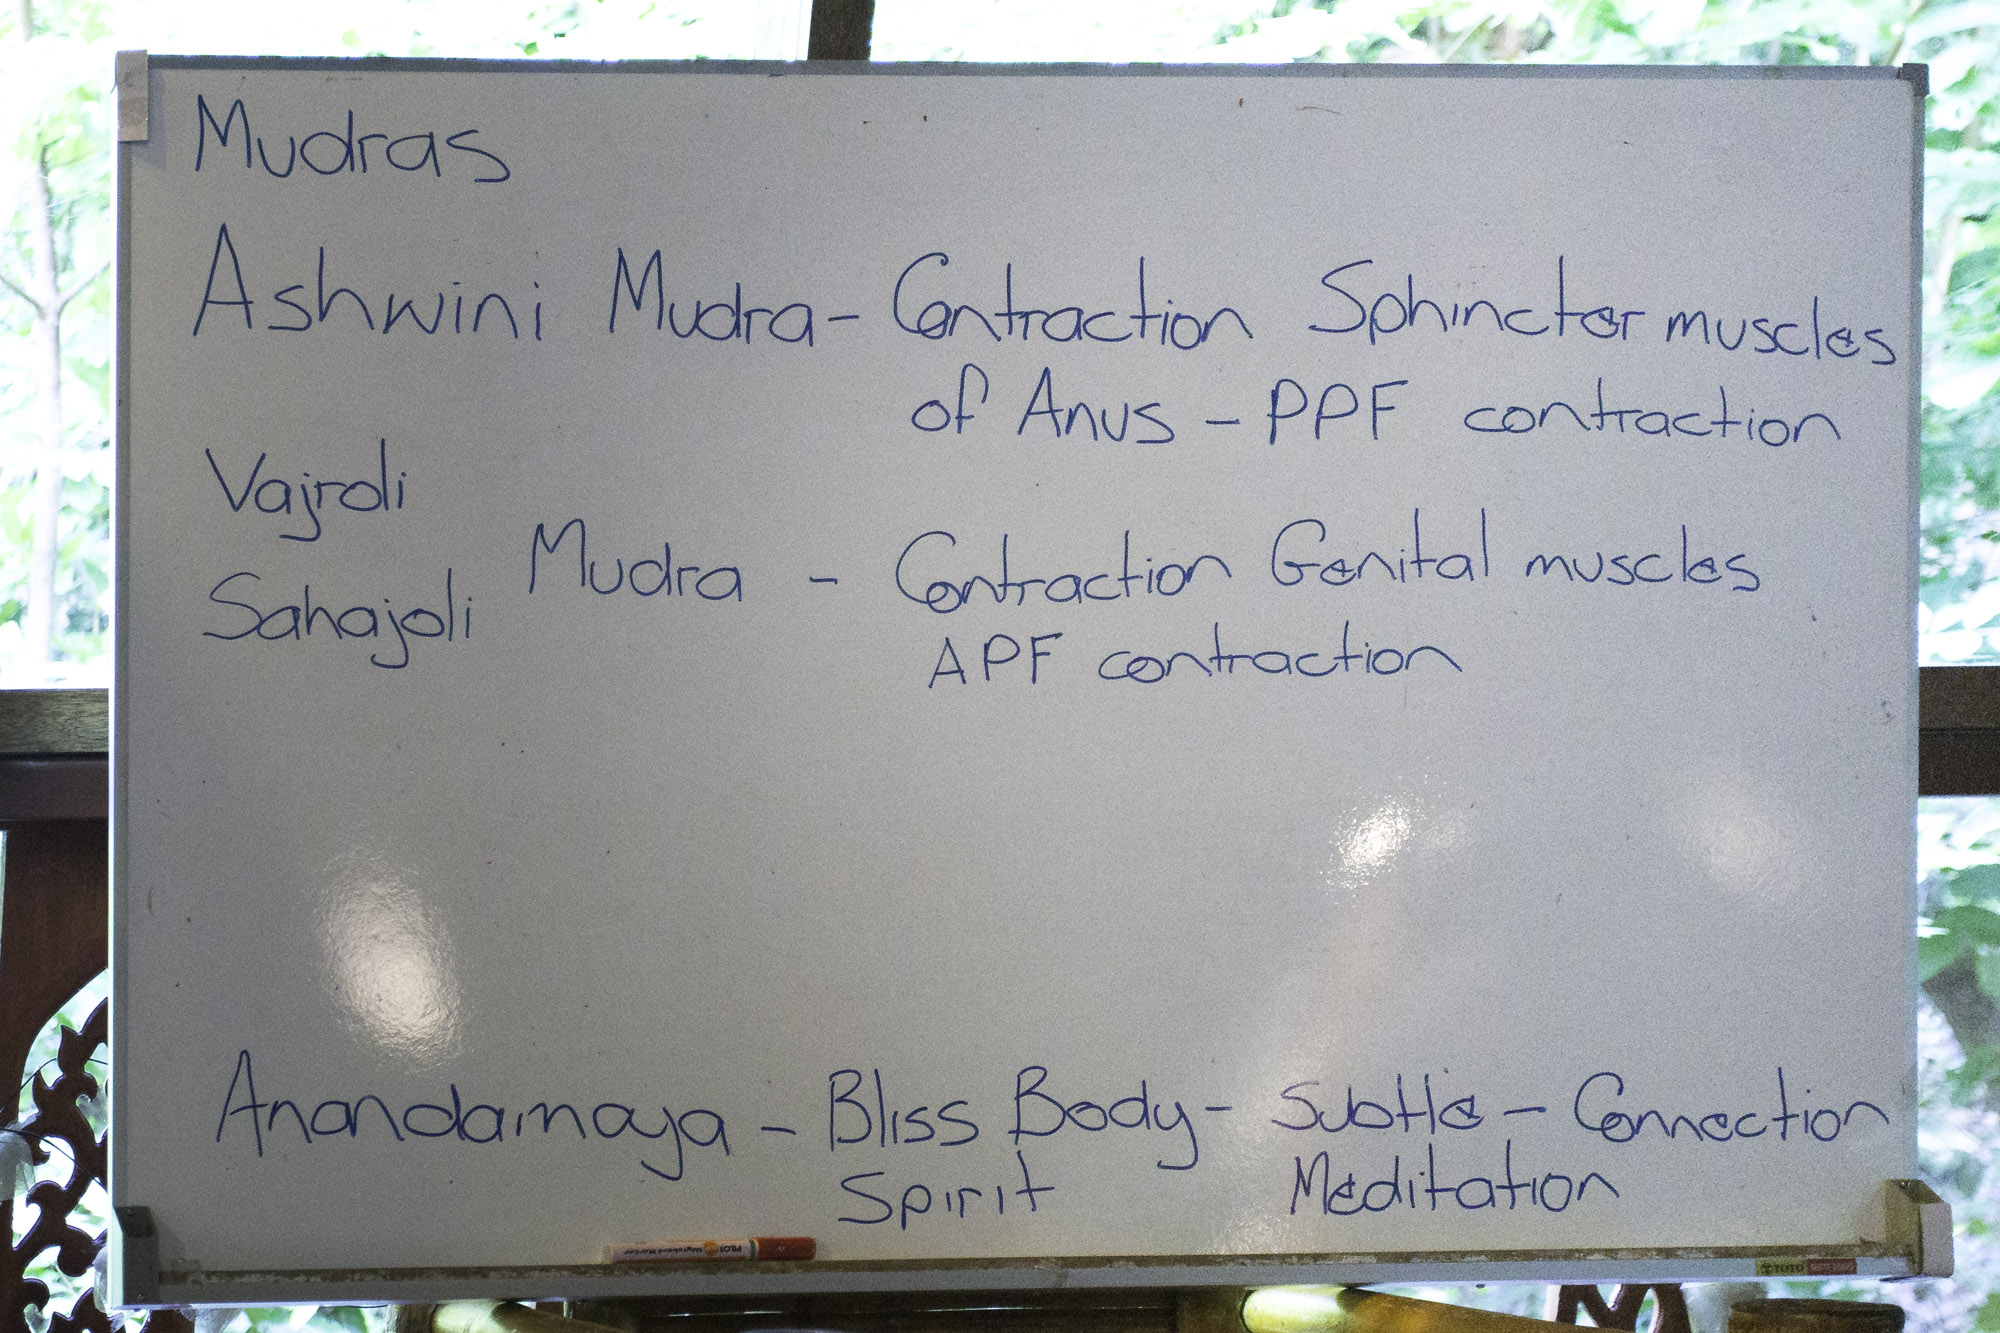 Mudras
Ashwini Mudra - Contraction Sphincter muscles
of Anus - PPF contraction
Vajroli
Mudra - Contraction Genital muscles
Sahajoli
APF contraction
Anandamaya - Bliss Body - Subtle - Connection
Spirit Meditation
PILOT
TOTO